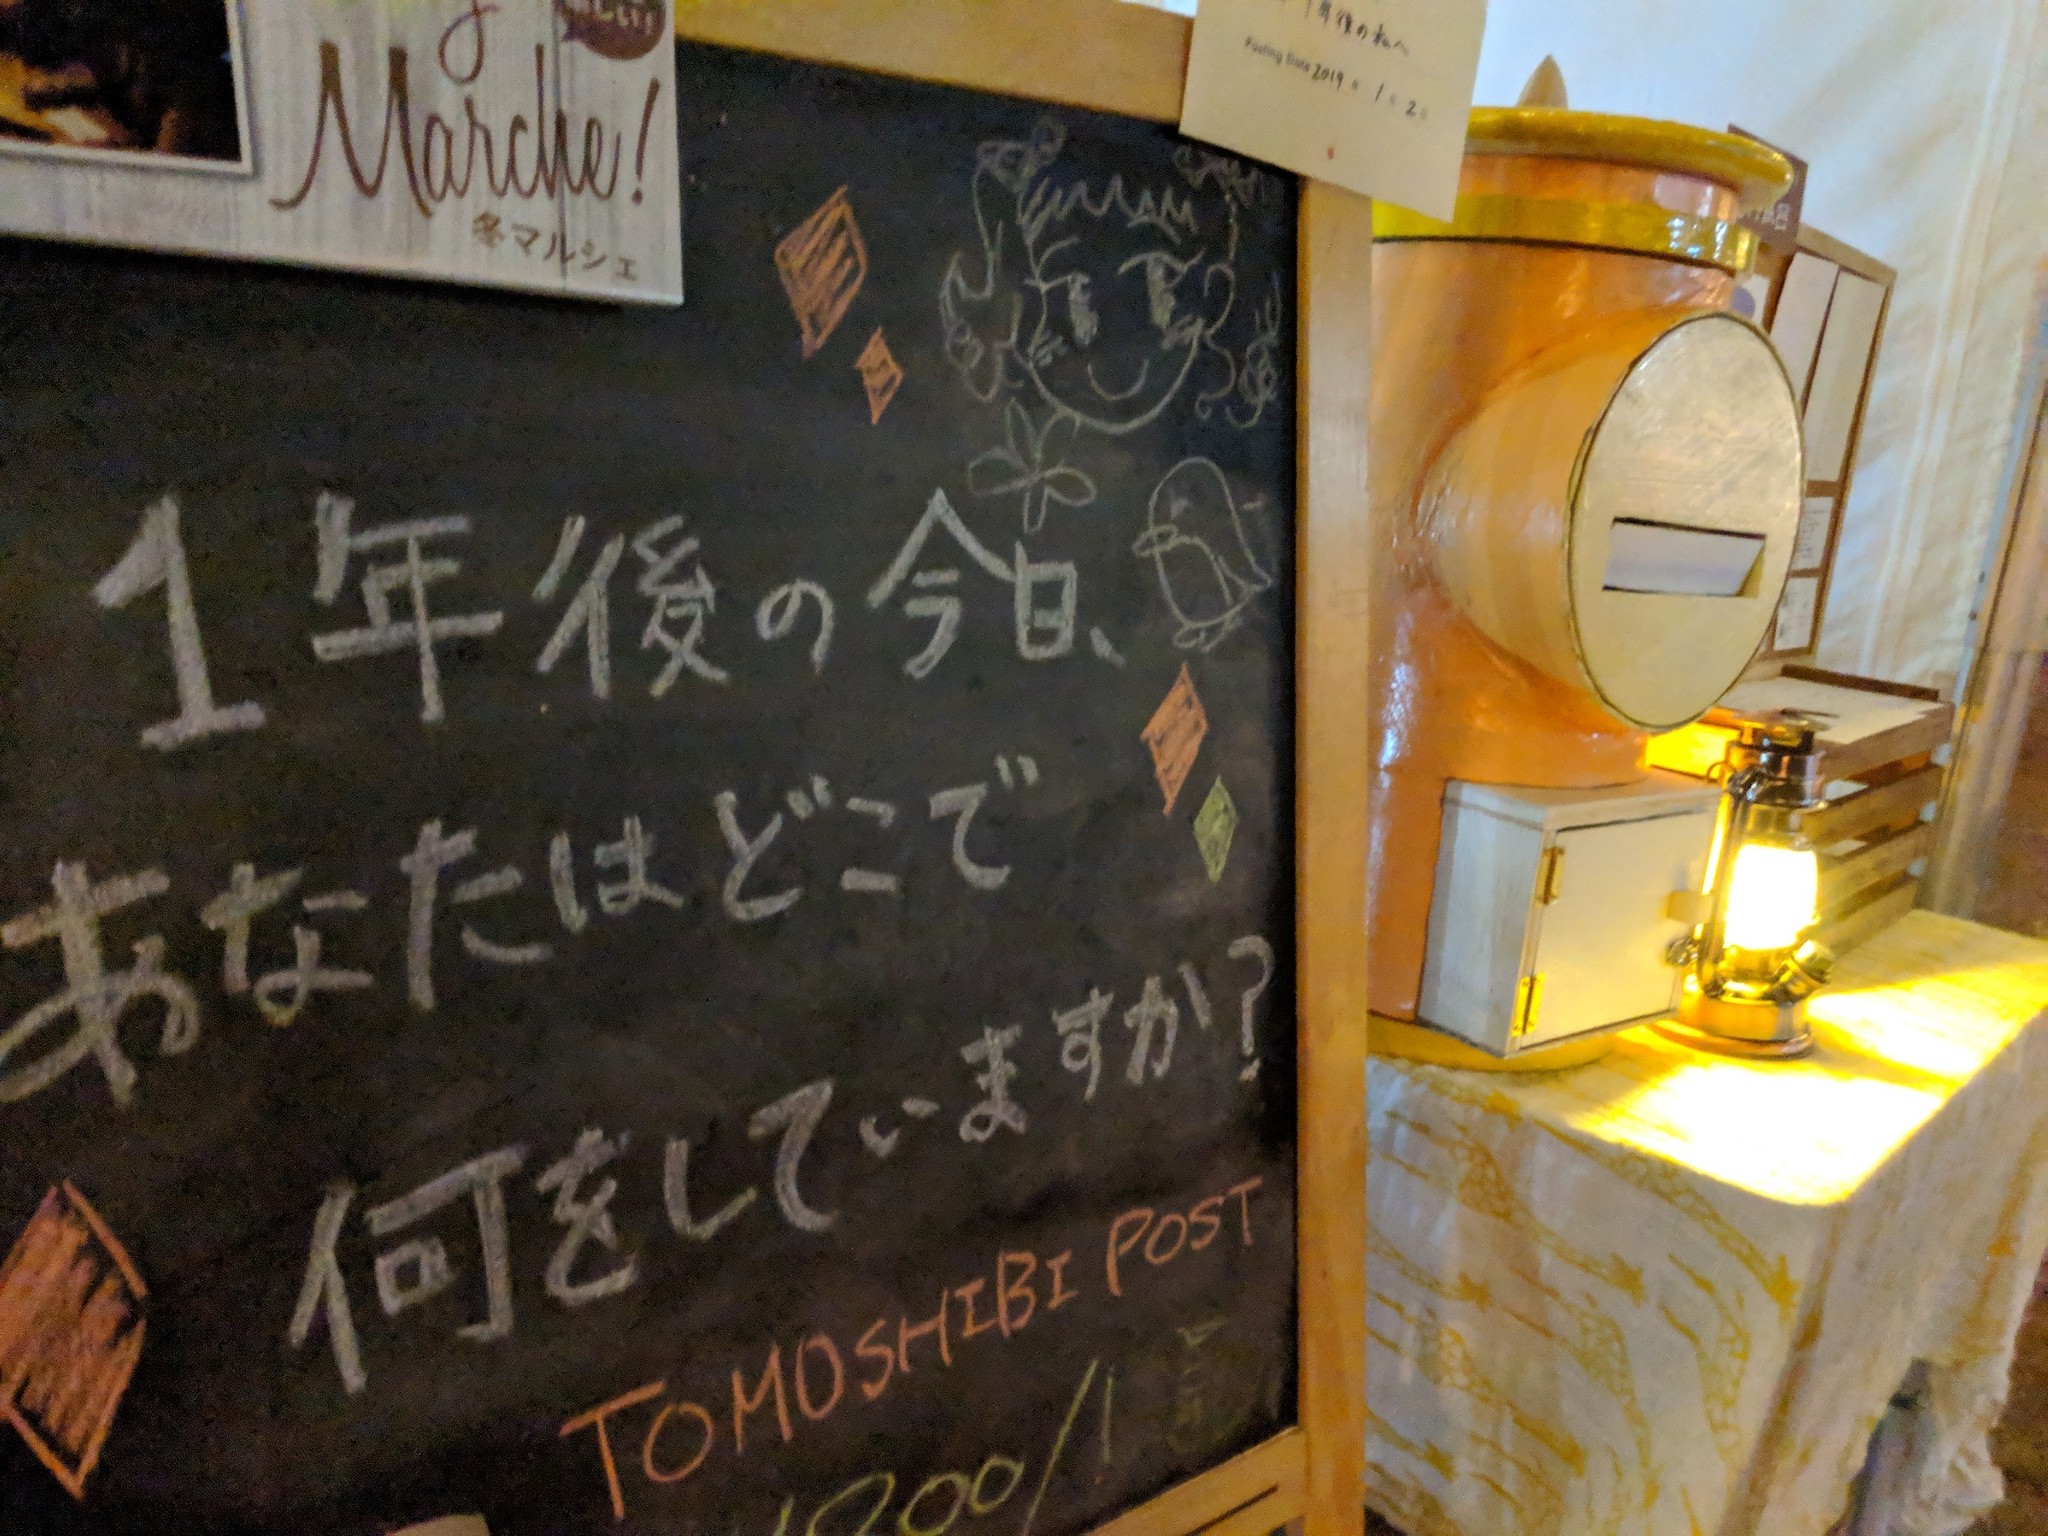 Marche!
冬マルシェ
1年後の私へ
Posting Date 2019 年 1 月 2 日
1年後の今日、
あなたはどこで
何をしていますか?
TOMOSHIBI POST